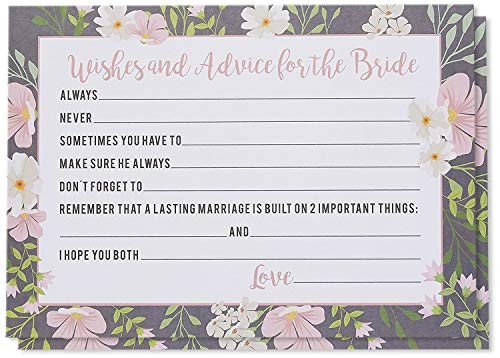 Wishes and Advice for the Bride
ALWAYS
NEVER
SOMETIMES YOU HAVE TO
MAKE SURE HE ALWAYS
DON'T FORGET TO
REMEMBER THAT A LASTING MARRIAGE IS BUILT ON 2 IMPORTANT THINGS:
AND
I HOPE YOU BOTH
Love